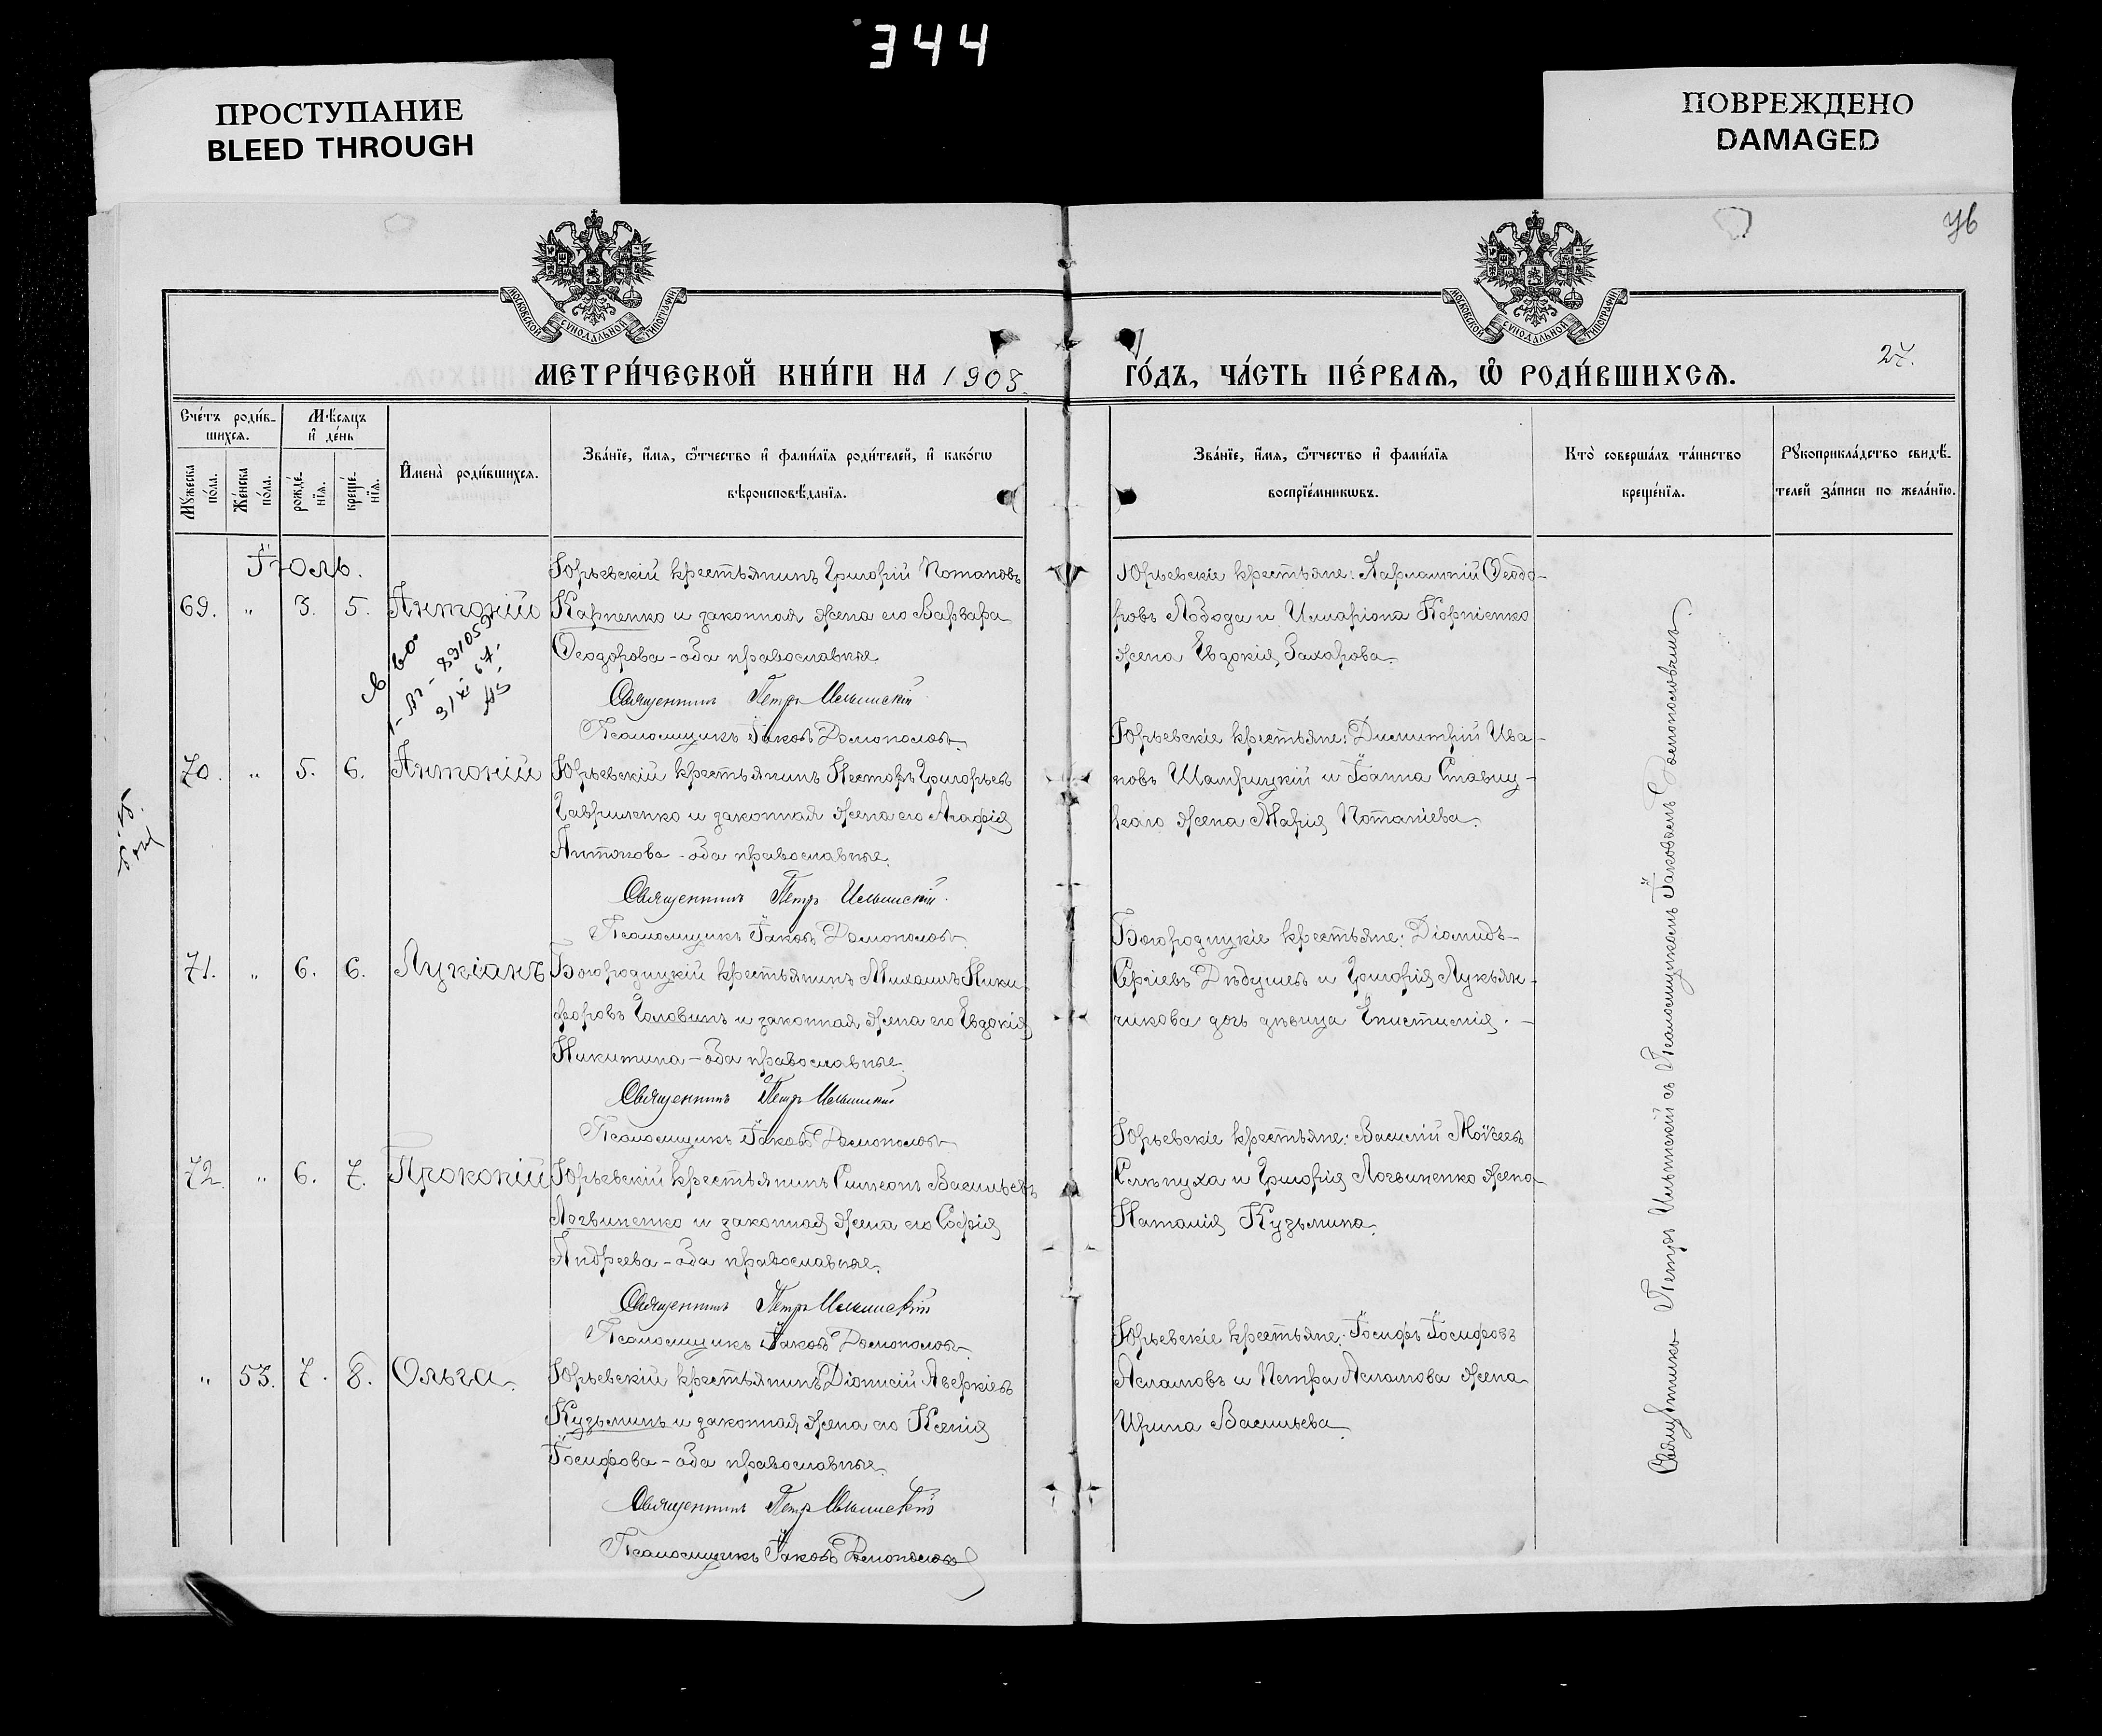 344
ПРОСТУПАНИЕ
BLEED THROUGH
ПОВРЕЖДЕНО
DAMAGED
МОСКОВСКОЙ СУНОДАЛЬНОЙ ТИПОГРАФІИ
МОСКОВСКОЙ СУНОДАЛЬНОЙ ТИПОГРАФІИ
МЕТРИ́ЧЕСКОЙ КНИ́ГИ НА 1908
ГО́ДЪ, ЧА́СТЬ ПЕ́РВАѦ, Ѽ РОДИ́ВШИХСѦ.
27.
Сче́тъ роди́в-
шихсѧ.
Мꙋжеска по́ла.
Же́нска по́ла.
Мѣ́сѧцъ
и҆ де́нь
рожде́-
нїѧ.
креще́-
нїѧ.
И҆мена̀ роди́вшихсѧ.
Зва́нїе, и҆́мѧ, ѻ҆́тчество и҆ фами́лїѧ роди́телей, и҆ како́гѡ
вѣроисповѣ́данїѧ.
Зва́нїе, и҆́мѧ, ѻ҆́тчество и҆ фами́лїѧ
воспрїе́мникѡвъ.
Кто̀ соверша́лъ та́инство
креще́нїѧ.
Рꙋкоприкла́дство свидѣ́-
телей за́писи по жела́нїю.
Іюль.
69. " 3. 5. Антоній
Юрьевскій крестьянинъ Григорій Потаповъ
Карпенко и законная жена его Варвара
Ѳеодорова - оба православные.
Священникъ Петръ Ильинскій
Псаломщикъ Іаковъ
Юрьевскіе крестьяне: Харлампій Ѳеодо-
ровъ Лобода и Илларіона Корніенко
жена Евдокія Захарова.
70. " 5. 6. Антоній
Юрьевскій крестьянинъ Несторъ Григорьевъ
Гавриленко и законная жена его Агафія
Антонова - оба православные.
Священникъ Петръ Ильинскій
Псаломщикъ Іаковъ
Юрьевскіе крестьяне: Димитрій Ива-
новъ и Іоанна Ставиц-
каго жена Марія
71. " 6. 6. Лукіанъ
Богородицкій крестьянинъ Михаилъ Ники-
форовъ Головинъ и законная жена его Евдокія
Никитина - оба православные.
Священникъ Петръ Ильинскій
Псаломщикъ Іаковъ
Богородицкіе крестьяне: Діомидъ
Сергіевъ и Григорія Лукьян-
чикова дочь дѣвица Епистимія.
72. " 6. 7. Прокопій
Юрьевскій крестьянинъ Симеонъ Васильевъ
Логвиненко и законная жена его Софія
Андреева - оба православные.
Священникъ Петръ Ильинскій
Псаломщикъ Іаковъ
Юрьевскіе крестьяне: Василій Моѵсеевъ
и Григорія Логвиненко жена
Наталія Кузьмина.
" 53. 7. 8. Ольга
Юрьевскій крестьянинъ Діонисій Аверкіевъ
Кузьминъ и законная жена его Ксенія
Іосифова - оба православные.
Священникъ Петръ Ильинскій
Псаломщикъ Іаковъ
Юрьевскіе крестьяне: Іосифъ Іосифовъ
Асламовъ и Петра Асламова жена
Ирина Васильева.
Священникъ Петръ Ильинскій съ Псаломщикомъ Іаковомъ